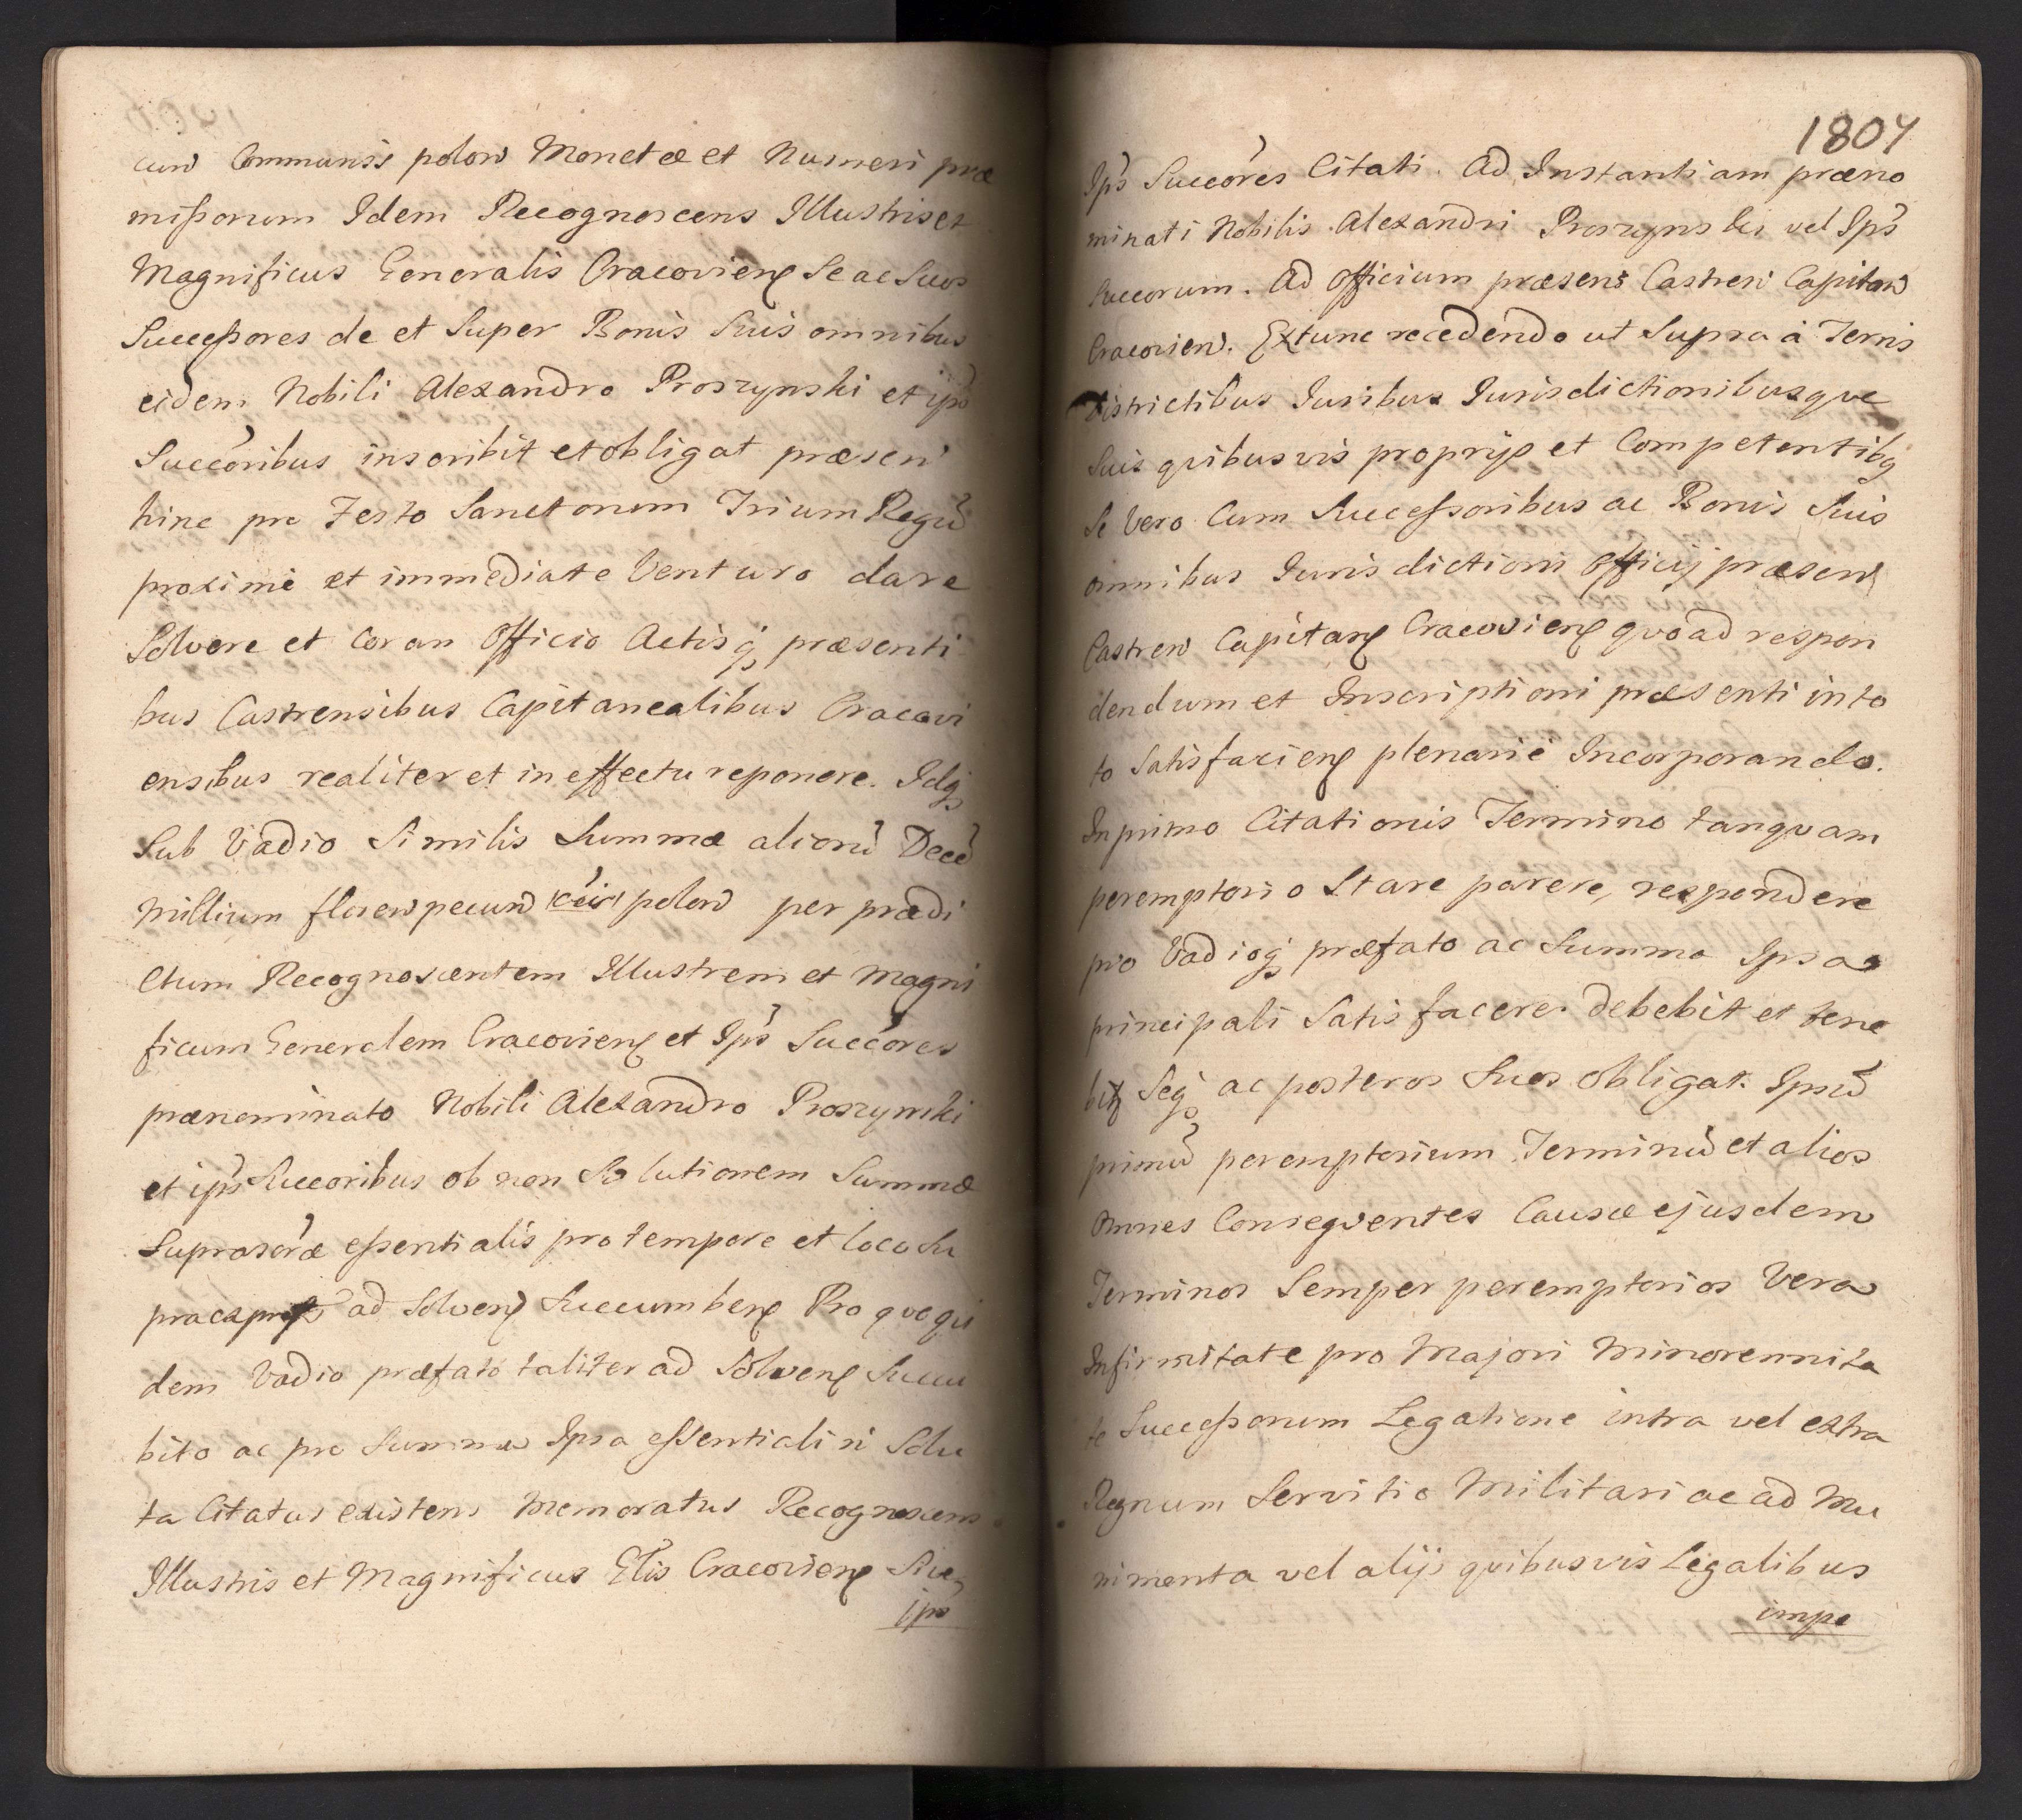 cun Communis polon Monetæ et Numeri præ
missorum Idem Recognoscens Illustris et
Magnificus Generalis Cracovien Se ac Suos
Successores de et Super Bonis Suis omnibus
eidem Nobili Alexandro Proszynski et ips
Succoribus inscribit et obligat præsen
hinc pro Festo Sanctorum Trium Regu
proxime et immediate Venturo dare
Solvere et coram Officio Actisq præsenti
bus Castrensibus Capitanealibus Cracovi
ensibus realiter et in effectu reponere. Idq
Sub Vadio Similis Summæ alioru Dece
Millium floren pecun polon per prædi
ctum Recognoscentem Illustrem et Magni
ficum Generalem Cracovien et Ips Succores
prænominato Nobili Alexandro Proszynski
et ips Succoribus ob non Solutionem Summæ
Suprascræ essentialis pro tempore et loco Su
ad Solven Succumben Pro quo qui
dem Vadio præfato taliter ad Solven Succu
bito ac pro Summa Ipsa essentiali ni Solu
ta Citatus existens Memoratus Recognoscens
Illustris et Magnificus Glis Cracovien Sive
ips
1807
Ips Succores Citati. Ad Instantiam præno
minati Nobilis Alexandri Proszynski vel Ips
Succorum. Ad Officium præsens Castren Capitan
Cracovien. Extunc recedendo ut Supra à Terris
Districtibus Juribus Jurisdictionibusque
Suis quibusvis proprijs et Competentibq
Se Vero Cum Successoribus ac Bonis Suis
omnibus Jurisdictioni Officij præsen
Castren Capitan Cracovien quo ad respon
dendum et Inscriptioni præsenti in to
to Satisfacien plenarie Incorporando.
In primo Citationis Termino tanquam
peremptorio Stare parere, respondere
pro Vadioq præfato ac Summa Ipsa
principali Satisfacere debebit et tene
bit Seq ac posteros Suos obligat. Ipsu
primu peremptorium Terminu et alios
Omnes Consequentes Causæ ejusdem
Terminos Semper peremptorios Vera
Infirmitate pro Majori Minorennita
te Successorum Legatione intra vel extra
Regnum Servitio Militari ac ad Mu
nimenta vel alijs quibusvis Legalibus
impe